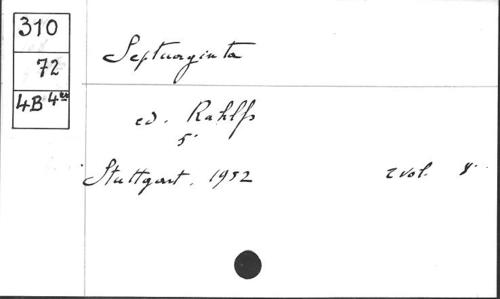 310
72
4B 4er
Septuaginta
ed. Rahlfs
5
Stuttgart, 1952 2 vol. 8°